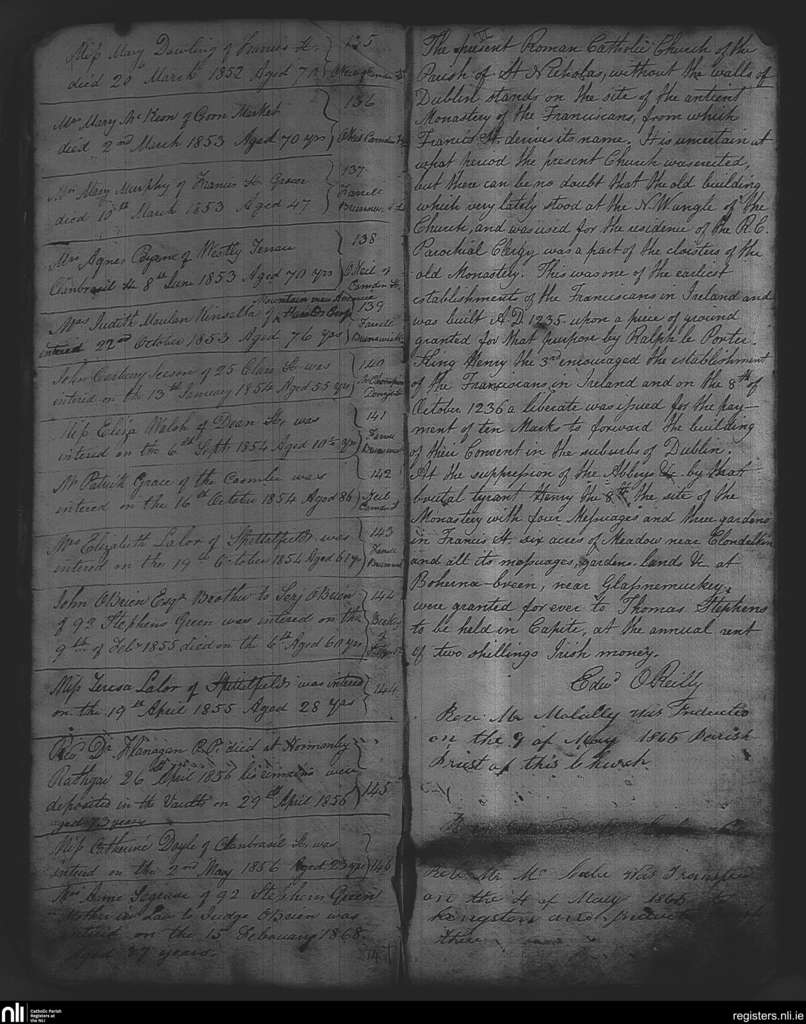 Miss Mary Dowling of Francis St. 135
died 20th March 1852 Aged 7
Mrs Mary McKeon of Corn Market 136
died 2nd March 1853 Aged 70 yrs
Mrs Mary Murphy of Francis St Grocer 137
died 10th March 1853 Aged 47 Farrell
Mrs Agnes Byrne of Westley Terrace 138
Clanbrasil St 8th June 1853 Aged 70 yrs O Neil
Camden St
Mountain view Avenue
Mrs Judith Kinsella of Harolds Cross 139
intered 22nd October 1853 Aged 76 yrs Farrell
Brunswick
John Secson of 25 St. was 140
intered on the 13th January 1854 Aged 55 yrs
Miss Eliza Walsh 4 Dean St, was 141
intered on the 6th Sept 1854 Aged yrs
Mr Patrick Grace of the Coombe was 142
intered on the 16th October 1854 Aged 86
Mrs Elizabeth Lalor of Spittelfields was 143
intered on the 19th October 1854 Aged 61 yrs
John OBrien Esqr Brother to Serj OBrien 144
of 92 Stephens Green was intered on the
9th of Feby 1855 died on the 6th Aged 60 yrs
Miss Teresa Lalor of Spittelfields was intered 144
on the 19th April 1855 Aged 28 yrs
Rev Dr Flanagan P.P. died at Normanby
Rathgar 26th April 1856 his remains were
deposited in the Vaults on 29th April 1856 145
aged 73 years
Miss Catherine Doyle of Clanbrasil St. was
intered on the 2nd May 1856 Aged 23 yrs 146
Mrs of 92 Stephens Green
Mother in Law to Judge OBrien was
intered on the 15 February 1868
Aged 87 years. 147
The present Roman Catholic Church of the
Parish of St Nicholas, without the walls of
Dublin stands on the site of the antient
Monastery of the Franciscans, from which
Francis St. derives its name. It is uncertain at
what period the present Church was erected,
but there can be no doubt that the old building
which very lately stood at the N.W. angle of the
Church, and was used for the residence of the R.C.
Parochial Clergy was a part of the cloisters of the
old Monastery. This was one of the earliest
establishments of the Franciscans in Ireland and
was built A.D 1235 upon a piece of ground
granted for that purpose by Ralph le Porter.
King Henry the 3rd encouraged the establishment
of the Franciscans, in Ireland and on the 8th of
October 1236 a liberate was issued for the pay-
ment of ten Marks to forward the building
of their Convent in the suburbs of Dublin.
At the suppression of the Abbeys &c by that
brutal tyrant Henry the 8th, the site of the
Monastery with four Messuages and three gardens
in Francis St. six acres of Meadow near Clondalkin
and all its messuages, gardens, lands &c at
Boherna-breen, near Glassnemuckey,
were granted for ever to Thomas Stephens
to be held in Capite, at the annual rent
of two shillings Irish money.
Edwd O Reilly
Rev. Mr Mulally was Inducted
on the 9 of May 1865 Parish
Priest of this Church
Rev. Mr Mc was
on the 4 of May 1865 to
Kingston and
there
nli
Catholic Parish
Registers at
the NLI
registers.nli.ie